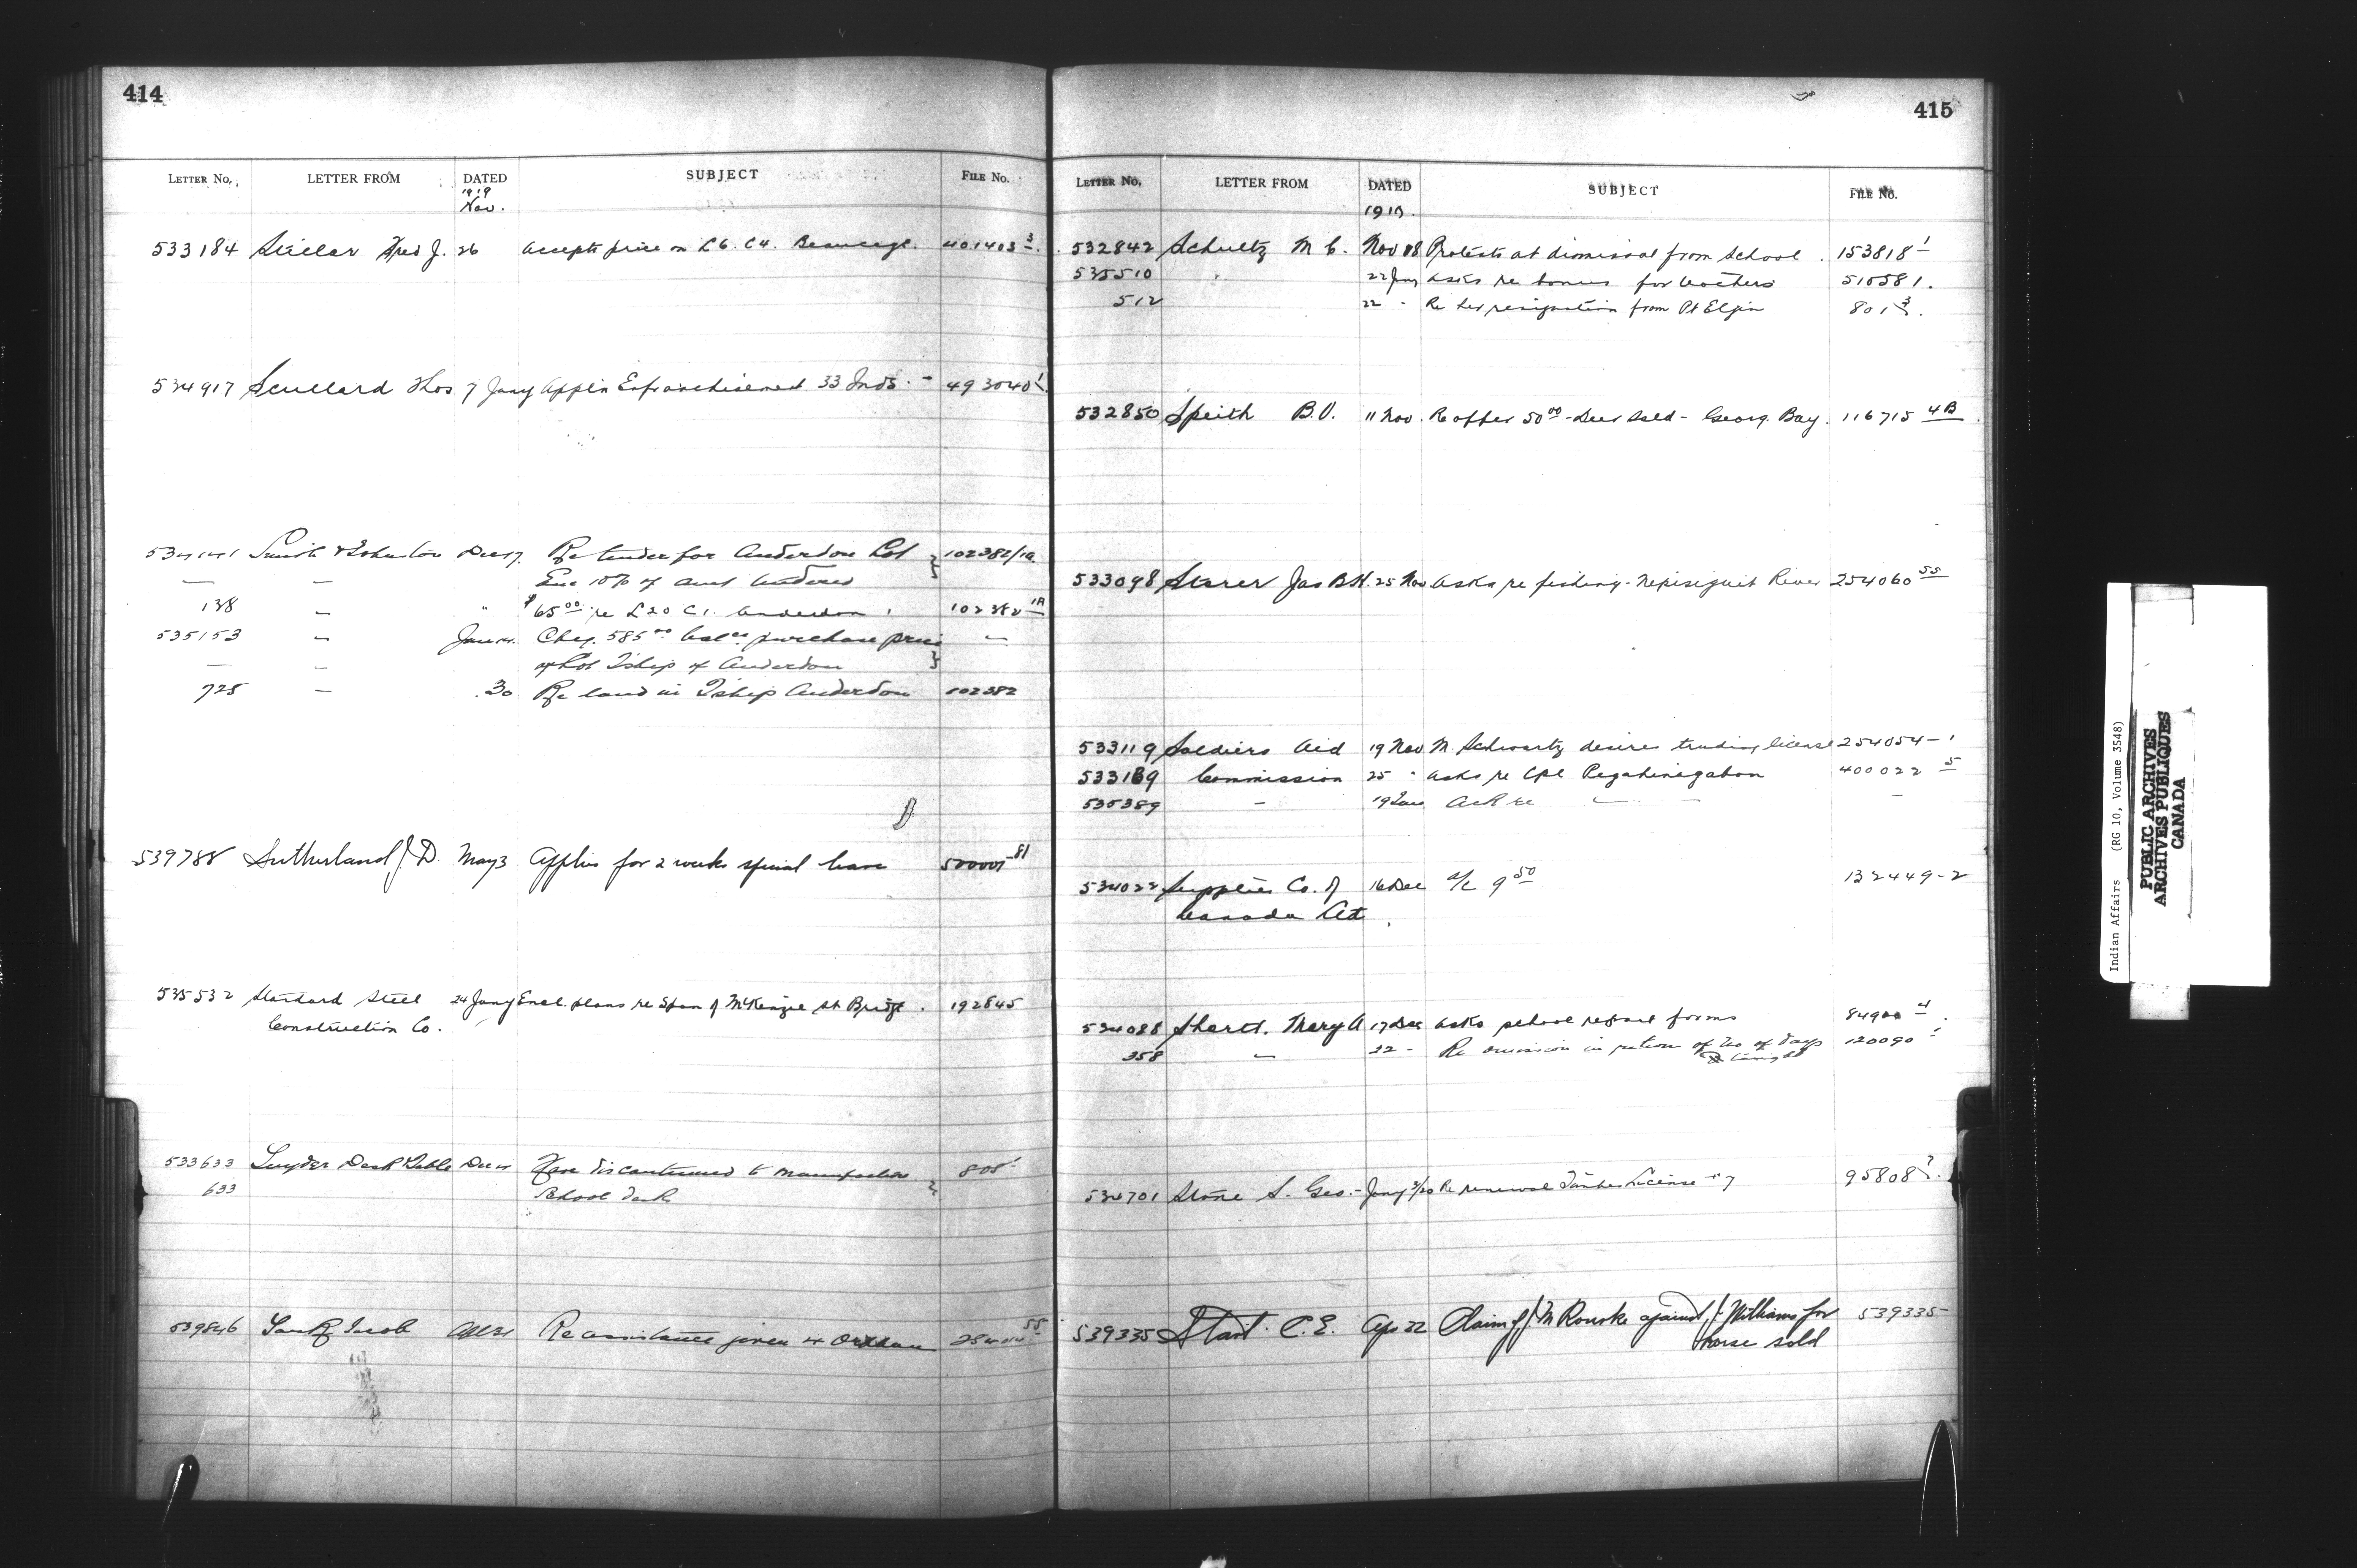 414
LETTER No. LETTER FROM DATED SUBJECT FILE No.
1919
Nov.
533184 Fred J. 26 accepts price on L6. C4. 401403 3
534917 Scullard Thos 7 Jany Appln Enfranchisement 33 Inds. - 493040 1
534141 Smith & Johnston Dec 17. Re tender for Anderdon Lot 102382/1a
— — Enc 10% of amt tendered
138 — " $65.00 re L20 C1. Anderdon 102382 1A
535153 — Cheq. 585.00 balce purchase price —
— — of Lot Tship of Anderdon
725 — 30 Re land in Tship Anderdon 102382
539788 Sutherland J. D. May 3 Applies for 2 weeks special leave 81
535532 Standard Steel 24 Jany Encl. plans re Span of McKenzie St Bridge. 192845
Construction Co.
533633 Snyder Desk & Table Dec Have discontinued to manufacture 805
633 School desk
539846 Jacob Re assistance given 55
415
LETTER No. LETTER FROM DATED SUBJECT FILE No.
1919.
532842 Schultz M C. Nov 18 Protests at dismissal from School. 153818 1
535510 22 Jany Asks re bonus for teachers 510581.
512 22 " Re her resignation from Pt Elgin 801 3.
532850 Speith B.V. 11 Nov. Re offer 50.00 - Deer Isld - Georg. Bay. 116715 4B
533098 Jas B.H. 25 Nov asks re fishing - Nepisiguit River 254060 55
533119 Soldiers Aid 19 Nov M. Schwartz desires trading license 254054-1
533189 Commission 25 " asks re Cpl Pegahmagabow 400022 5
535389 — 19 Jan — — —
534022 Supplies Co. of 16 Dec a/c 9.50 132449-2
Canada Ltd
534088 Mary A 17 Dec asks school return forms 84900 4
358 — 22 - Re omission in return of No of days 120090 1
taught
534701 Stone S. Geo. - Jany 3/20 Re renewal Timber License 17 95808
539335 Start C.E. Apr 22 Claim of J. M Rourke against J. Williams for 539335
horse sold
Indian Affairs (RG 10, Volume 3548)
PUBLIC ARCHIVES
ARCHIVES PUBLIQUES
CANADA